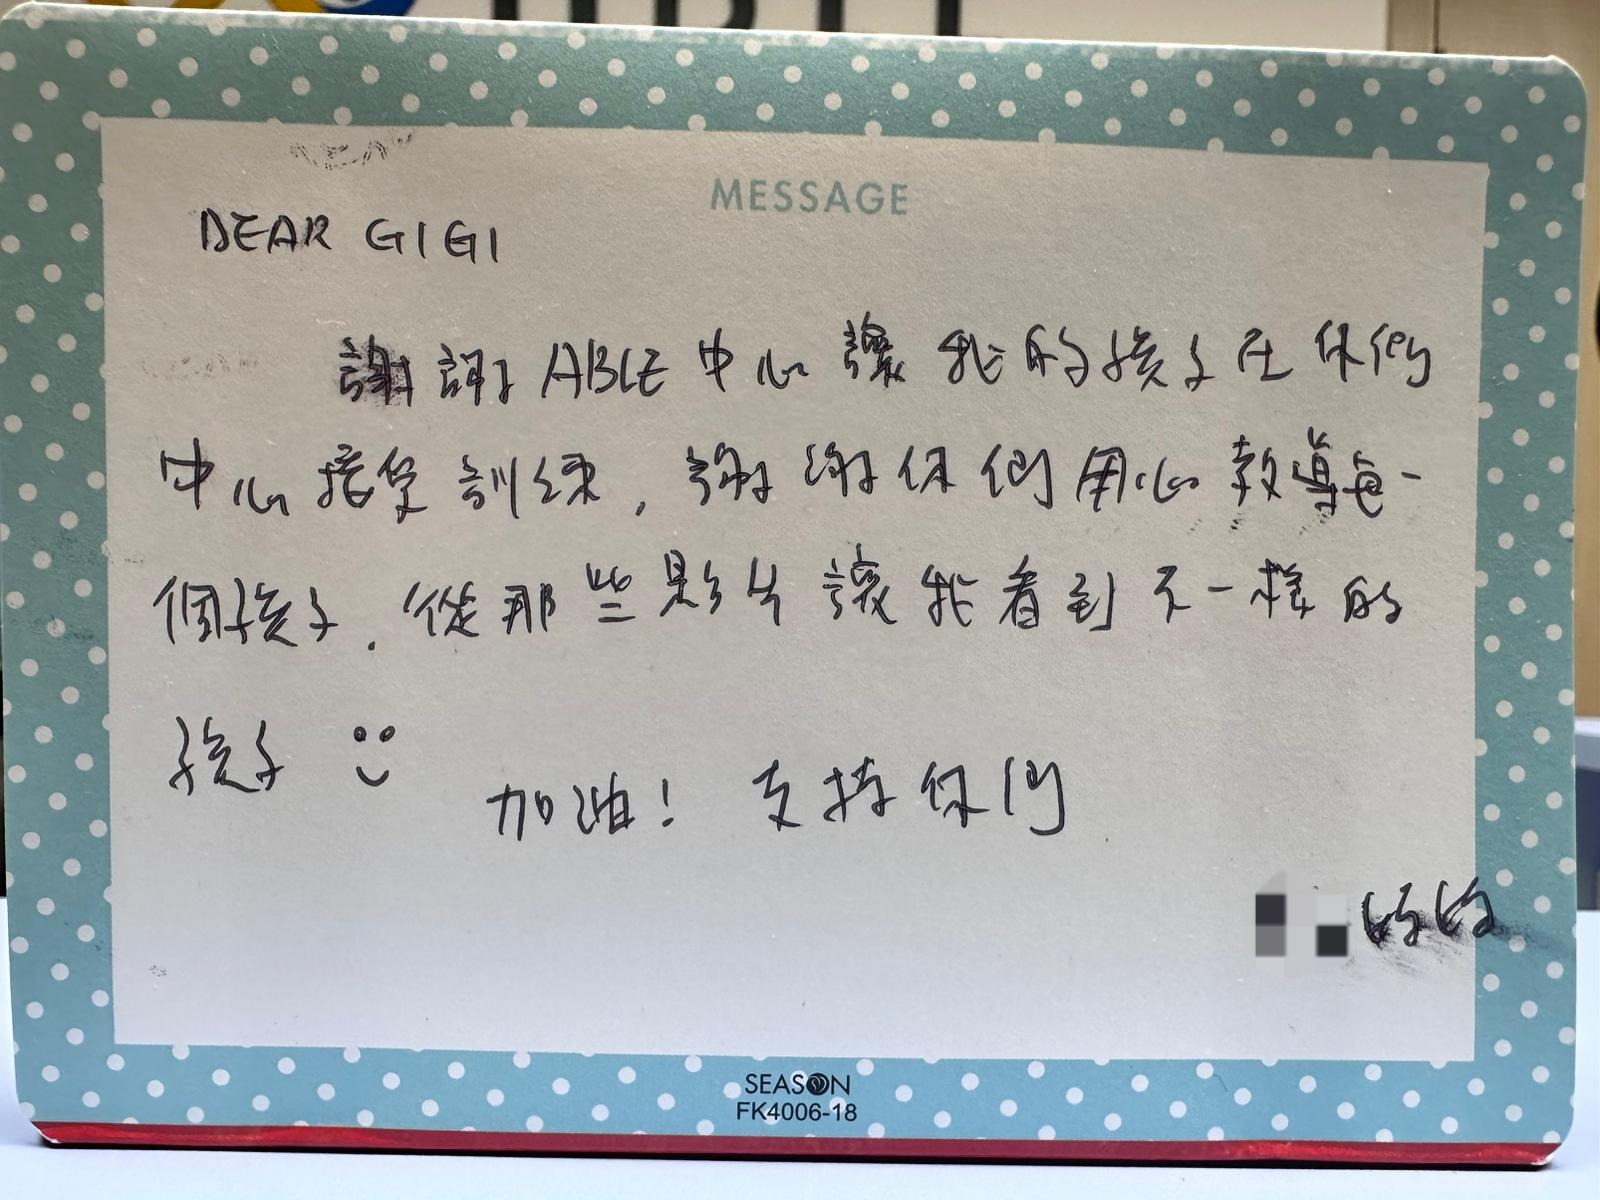 MESSAGE
DEAR GIGI
謝謝ABLE中心讓我的孩子在你們
中心接受訓練，謝謝你們用心教導每一
個孩子．從那些影片讓我看到不一樣的
孩子
加油！ 支持你們
SEASON
FK4006-18